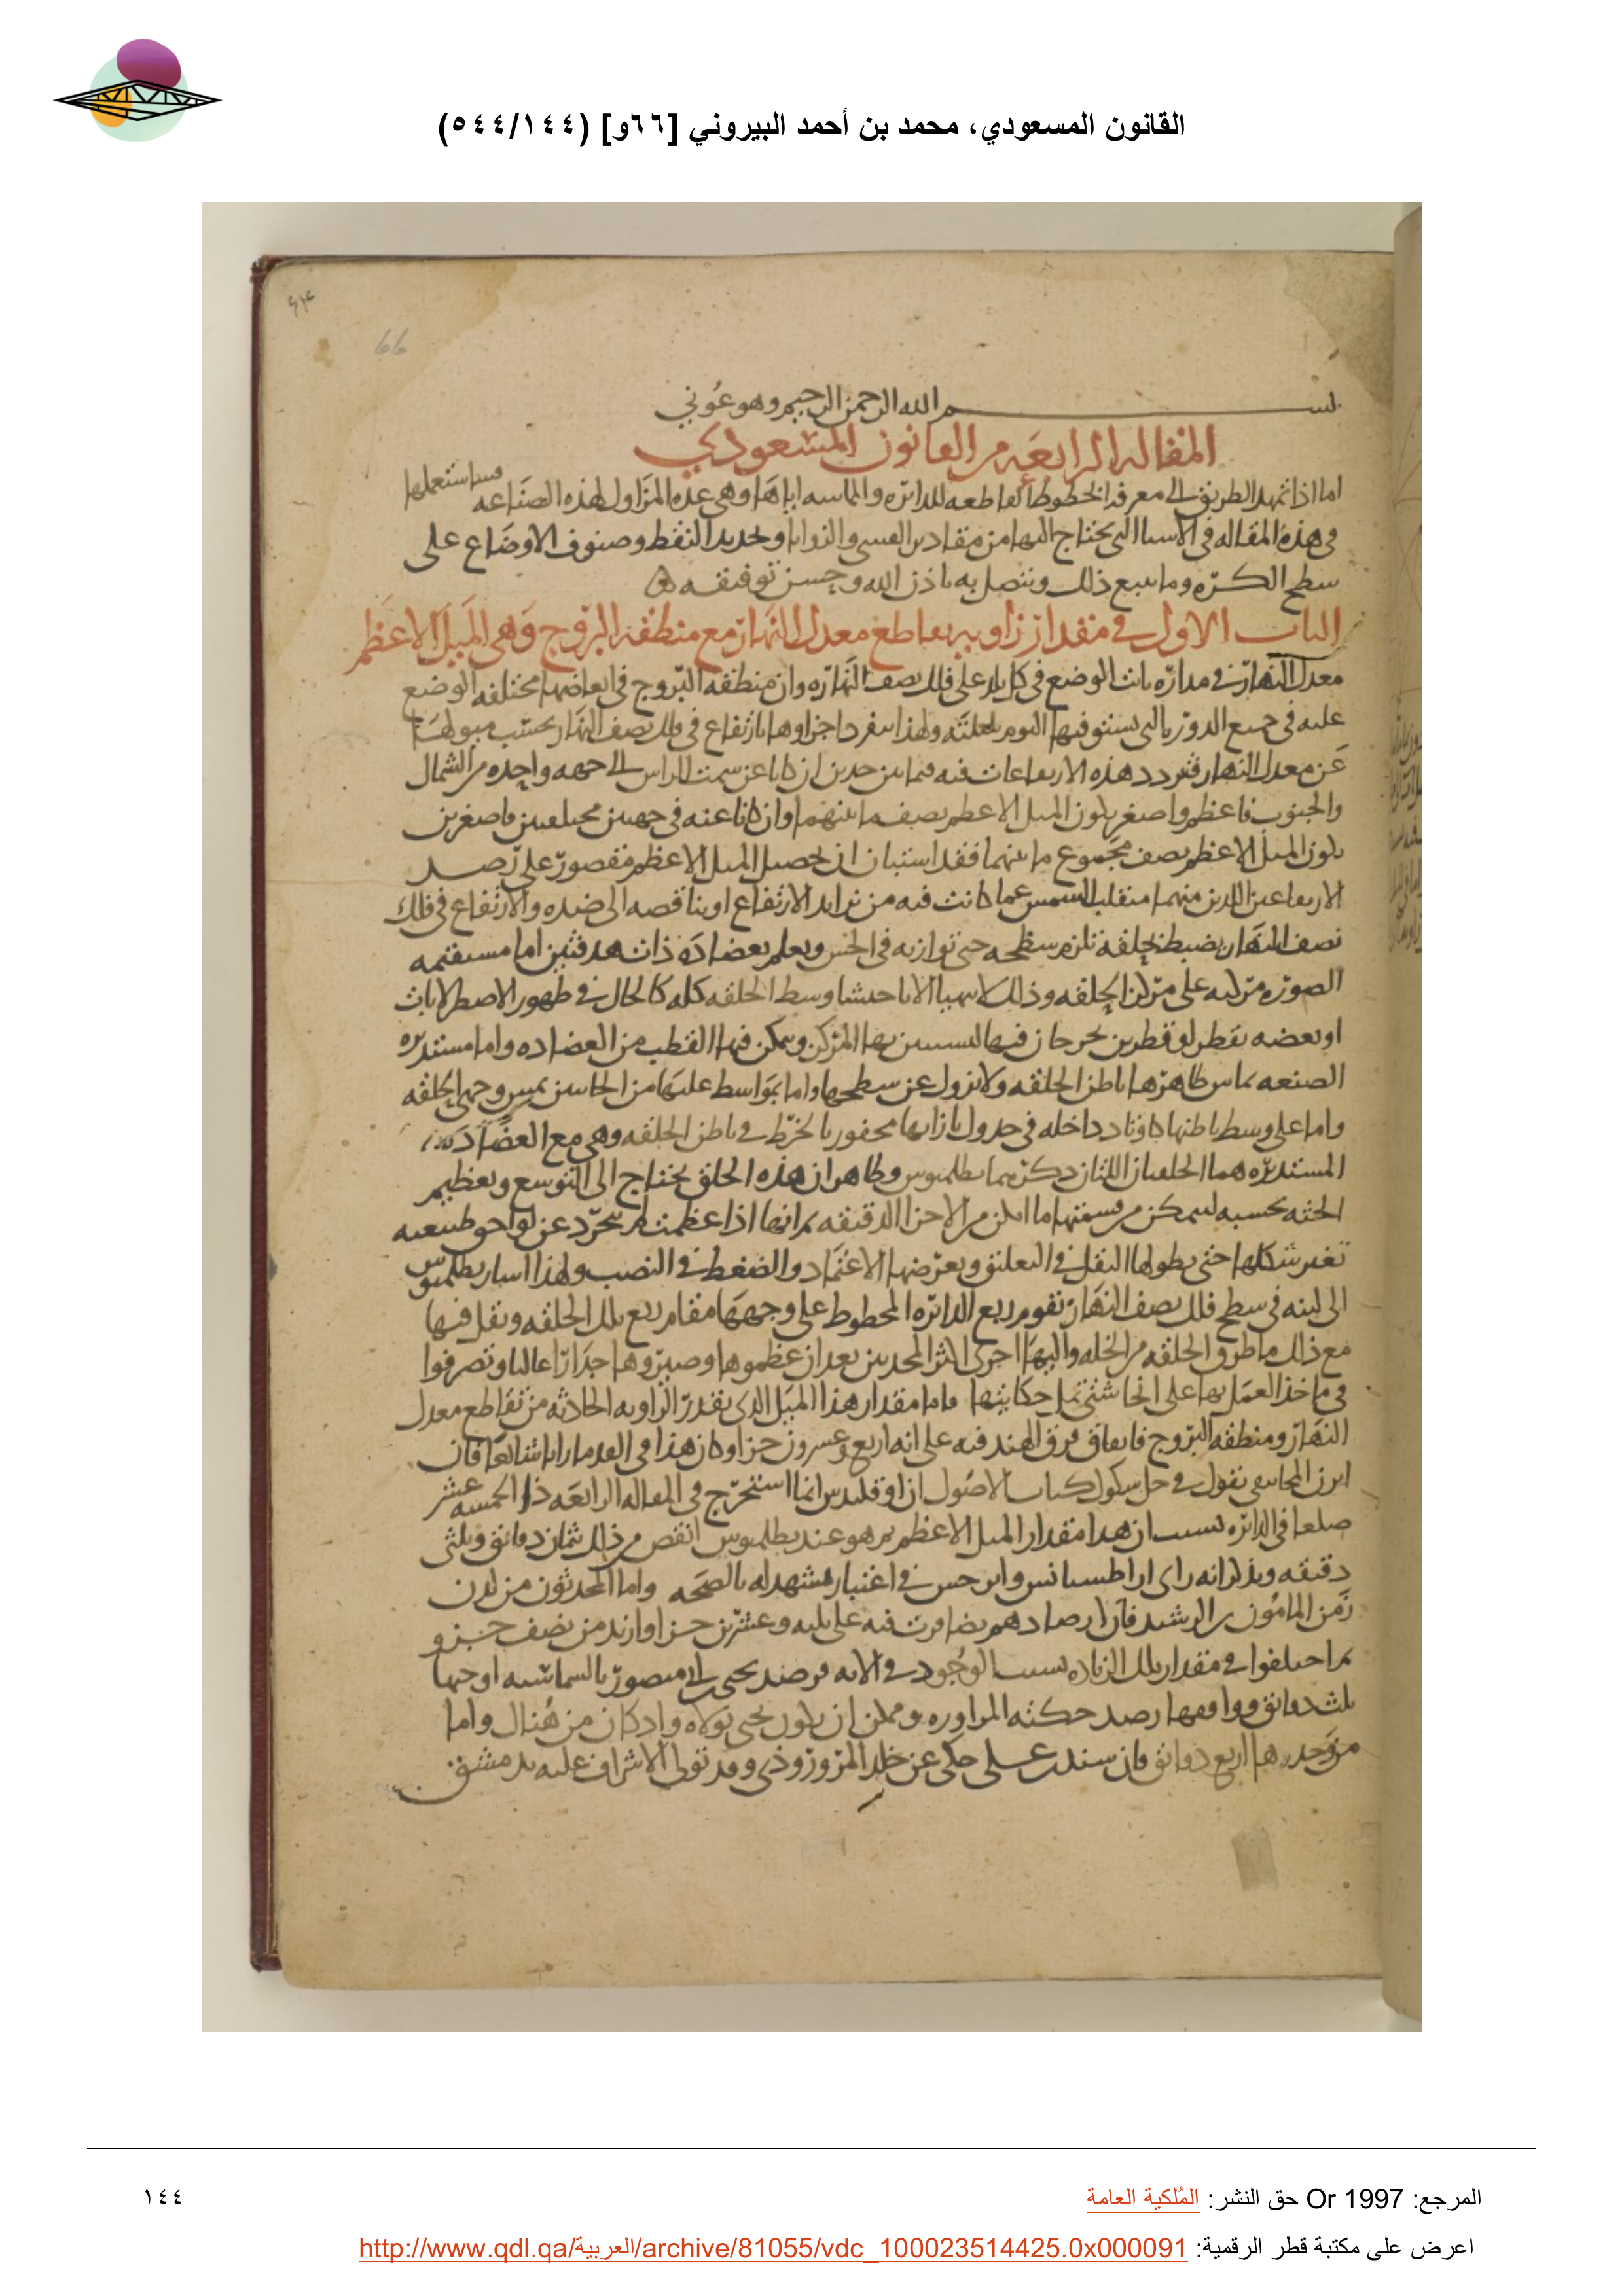 القانون المسعودي، محمد بن أحمد البيروني [٦٦و] (٥٤٤/١٤٤)
66
بسم الله الرحمن الرحيم وهو عوني
المقاله الرابعه من القانون المسعودي
اما اذا تمهد الطريق الى معرفه الخطوط القاطعه للدائره والمماسه اياها وهى عده المزاول لهذه الصناعه فسنستعملها
فى هذه المقاله فى الاشيا التى يحتاج اليها من مقادير القسى والزوايا وتحديد النقط وصنوف الاوضاع على
سطح الكره وما يتبع ذلك ويتصل به باذن الله وحسن توفيقه
الباب الاول فى مقدار زاويه تقاطع معدل النهار مع منطقه البروج وهى الميل الاعظم
معدل النهار فى مداره ثابت الوضع فى كل بلد على فلك نصف النهاره وان منطقه البروج فى ابعاضها مختلفه الوضع
عليه فى جميع الدور التى يستوفيها اليوم بليلته ولهذا ينفرد اجزاوها بارتفاع فى فلك نصف النهار بحسب ميولها
عن معدل النهار فتردد هذه الارتفاعات فيه فيما بين حدين ان كانا عن سمت الراس الى جهه واحده من الشمال
والجنوب فاعظم واصغر يكون الميل الاعظم نصف ما بينهما وان كانا عنه فى جهتين مختلفتين فاصغرين
يكون الميل الاعظم نصف مجموع ما بينهما فقد استبان ان تحصيل الميل الاعظم مقصور على رصد
الارتفاعين اللذين منهما منقلب الشمس عما كانت فيه من تزايد الارتفاع او تناقصه الى ضده والارتفاع فى فلك
نصف النهار يضبط بحلقه تلزم سطحه حتى توازيه فى الحس ويعلم بعضاده ذات هدفتين اما مستقيمه
الصوره مركبه على مركز الحلقه وذلك لا يتهيا الا باحتشا وسط الحلقه كله كالحال فى ظهور الاصطرلابات
او بعضه بقطر او قطرين يخرجان فيها ليستبين بها المركز ويمكن فيها القطب من العضاده واما مستديره
الصنعه يماس ظاهرها باطن الحلقه ولا تزول عن سطحها واما بواسط عليها من الجانبين تمس وجهى الحلقه
واما على وسط باطنها كاوتاد داخله فى جدول بازايها محفور بالخرط فى باطن الحلقه وهى مع العضاده
المستديره هما الحلقتان اللتان ذكرهما بطلميوس وظاهر ان هذه الحلق يحتاج الى التوسع وتعظيم
الجثه بحسبه ليمكن من قسمتها ما امكن من الاجزا الدقيقه ثم انها اذا عظمت لم تتجرد عن لواحق طبيعيه
تغير شكلها حتى يطولها الثقل فى التعليق ويعرضها الاعتماد والضغط فى النصب ولهذا اشار بطلميوس
الى لبنه فى سطح فلك نصف النهار تقوم ربع الدائره المخطوط على وجهها مقام ربع تلك الحلقه ويقل فيها
مع ذلك ما طرق الحلقه من الخله واليها اجرى اكثر المحدثين بعد ان عظموها وصيروها جدارا عاليا وتصرفوا
فى ماخذ العمل بها على انحا شتى تمل حكايتها فاما مقدار هذا الميل الذى يقدر الزاويه الحادثه من تقاطع معدل
النهار ومنطقه البروج فاتفاق فرق الهند فيه على انه اربع وعشرون جزا وكان هذا فى القدما رايا شائعا فان
ايرن المجانيقى يقول فى حل شكوك كتاب الاصول ان اوقليدس انما استخرج فى المقاله الرابعه ذا الخمسه عشر
ضلعا فى الدائره بسبب ان هذا مقدار الميل الاعظم ثم هو عند بطلميوس انقص من ذلك ثمان دقائق وثلثى
دقيقه ويذكر انه راى اراطسثانس وابرخس فى اعتبار مشهد له بالصحه واما المحدثون من لدن
زمن المامون بن الرشيد فان ارصادهم تضافرت فيه على ثلثه وعشرين جزا وازيد من نصف جزو
ثم اختلفوا فى مقدار تلك الزياده بسبب الوجود فى الاله فرصد يحيى بن ابى منصور بالشماسيه اوجبها
ثلث دقائق ووافقها رصد حكته المراوره وممكن ان يكون يحيى تولاه واذ كان من هنال واما
من وجدها اربع دقائق فان سند بن على حكى عن خلد المروروذى وقد تولى الاشراف عليه بدمشق
المرجع: Or 1997 حق النشر: المُلكية العامة
١٤٤
اعرض على مكتبة قطر الرقمية: http://www.qdl.qa/العربية/archive/81055/vdc_100023514425.0x000091